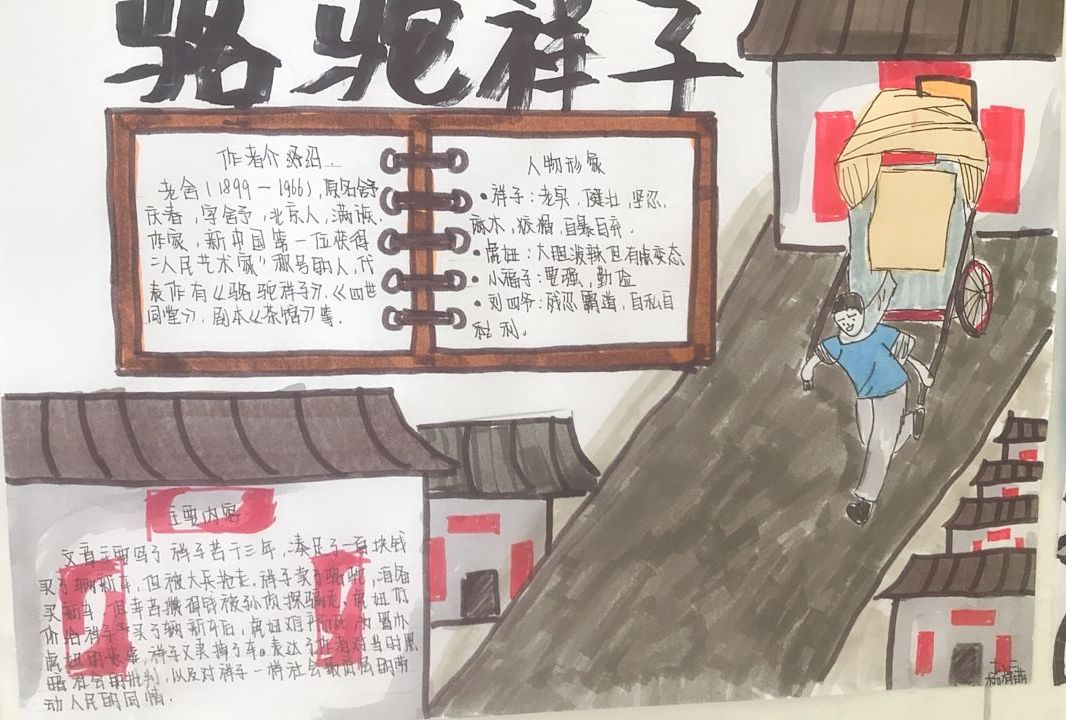 骆驼祥子
作者介绍
老舍(1899-1966),原名舒
庆春,字舍予,北京人,满族.
作家,新中国第一位获得
“人民艺术家”称号的人,代
表作有《骆驼祥子》,《四世
同堂》,剧本《茶馆》等.
人物形象
·祥子:老实,健壮,坚忍,
麻木,狡猾,自暴自弃.
·虎妞:大胆泼辣但有点变态
·小福子:要强,勤俭
·刘四爷:残忍霸道,自私自
利.
主要内容
文章主要写了祥子苦干三年,凑足了一百块钱
买了辆新车,但被大兵抢走.祥子卖了骆驼,准备
买新车,但幸苦攒得钱被孙侦探骗走.虎妞
给祥子买了辆新车后,虎妞难产而死,为置办
虎妞的丧事,祥子又卖掉了车。表达了作者对当时黑
暗社会的批判,以及对祥子一样社会最底层的劳
动人民的同情.